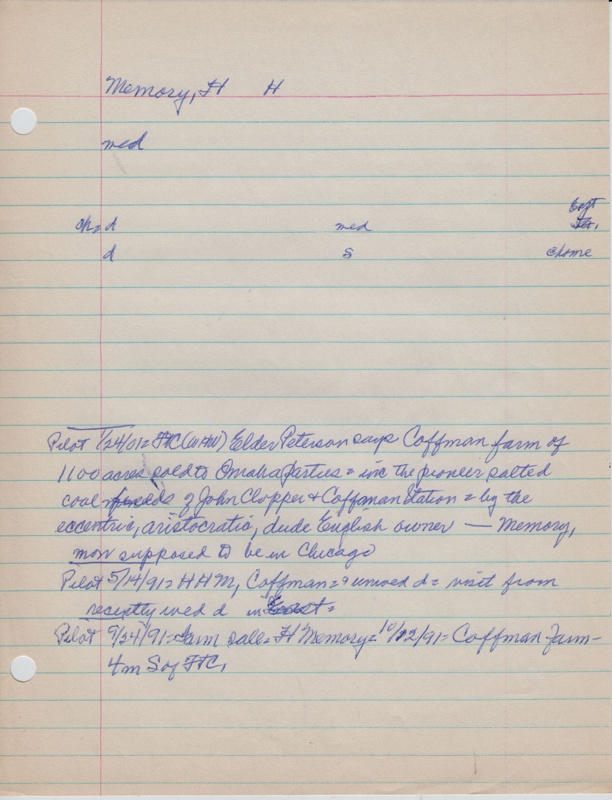 Memory, H H
med
ch = d med Engt
Ter.
d s chome
Pilot 1/24/01 = FtC (WHW) Elder Peterson says Coffman farm of
1100 acres sold to Omaha parties = inc the pioneer salted
coal fields of John Clopper & Coffman Station = by the
eccentric, aristocratic, dude English owner — Memory,
now supposed to be in Chicago
Pilot 5/14/91 = H H M, Coffman = & unwed d = visit from
recently wed d in East =
Pilot 9/24/91 = Farm sale = H Memory = 10/22/91 = Coffman Farm -
4m S of FtC.